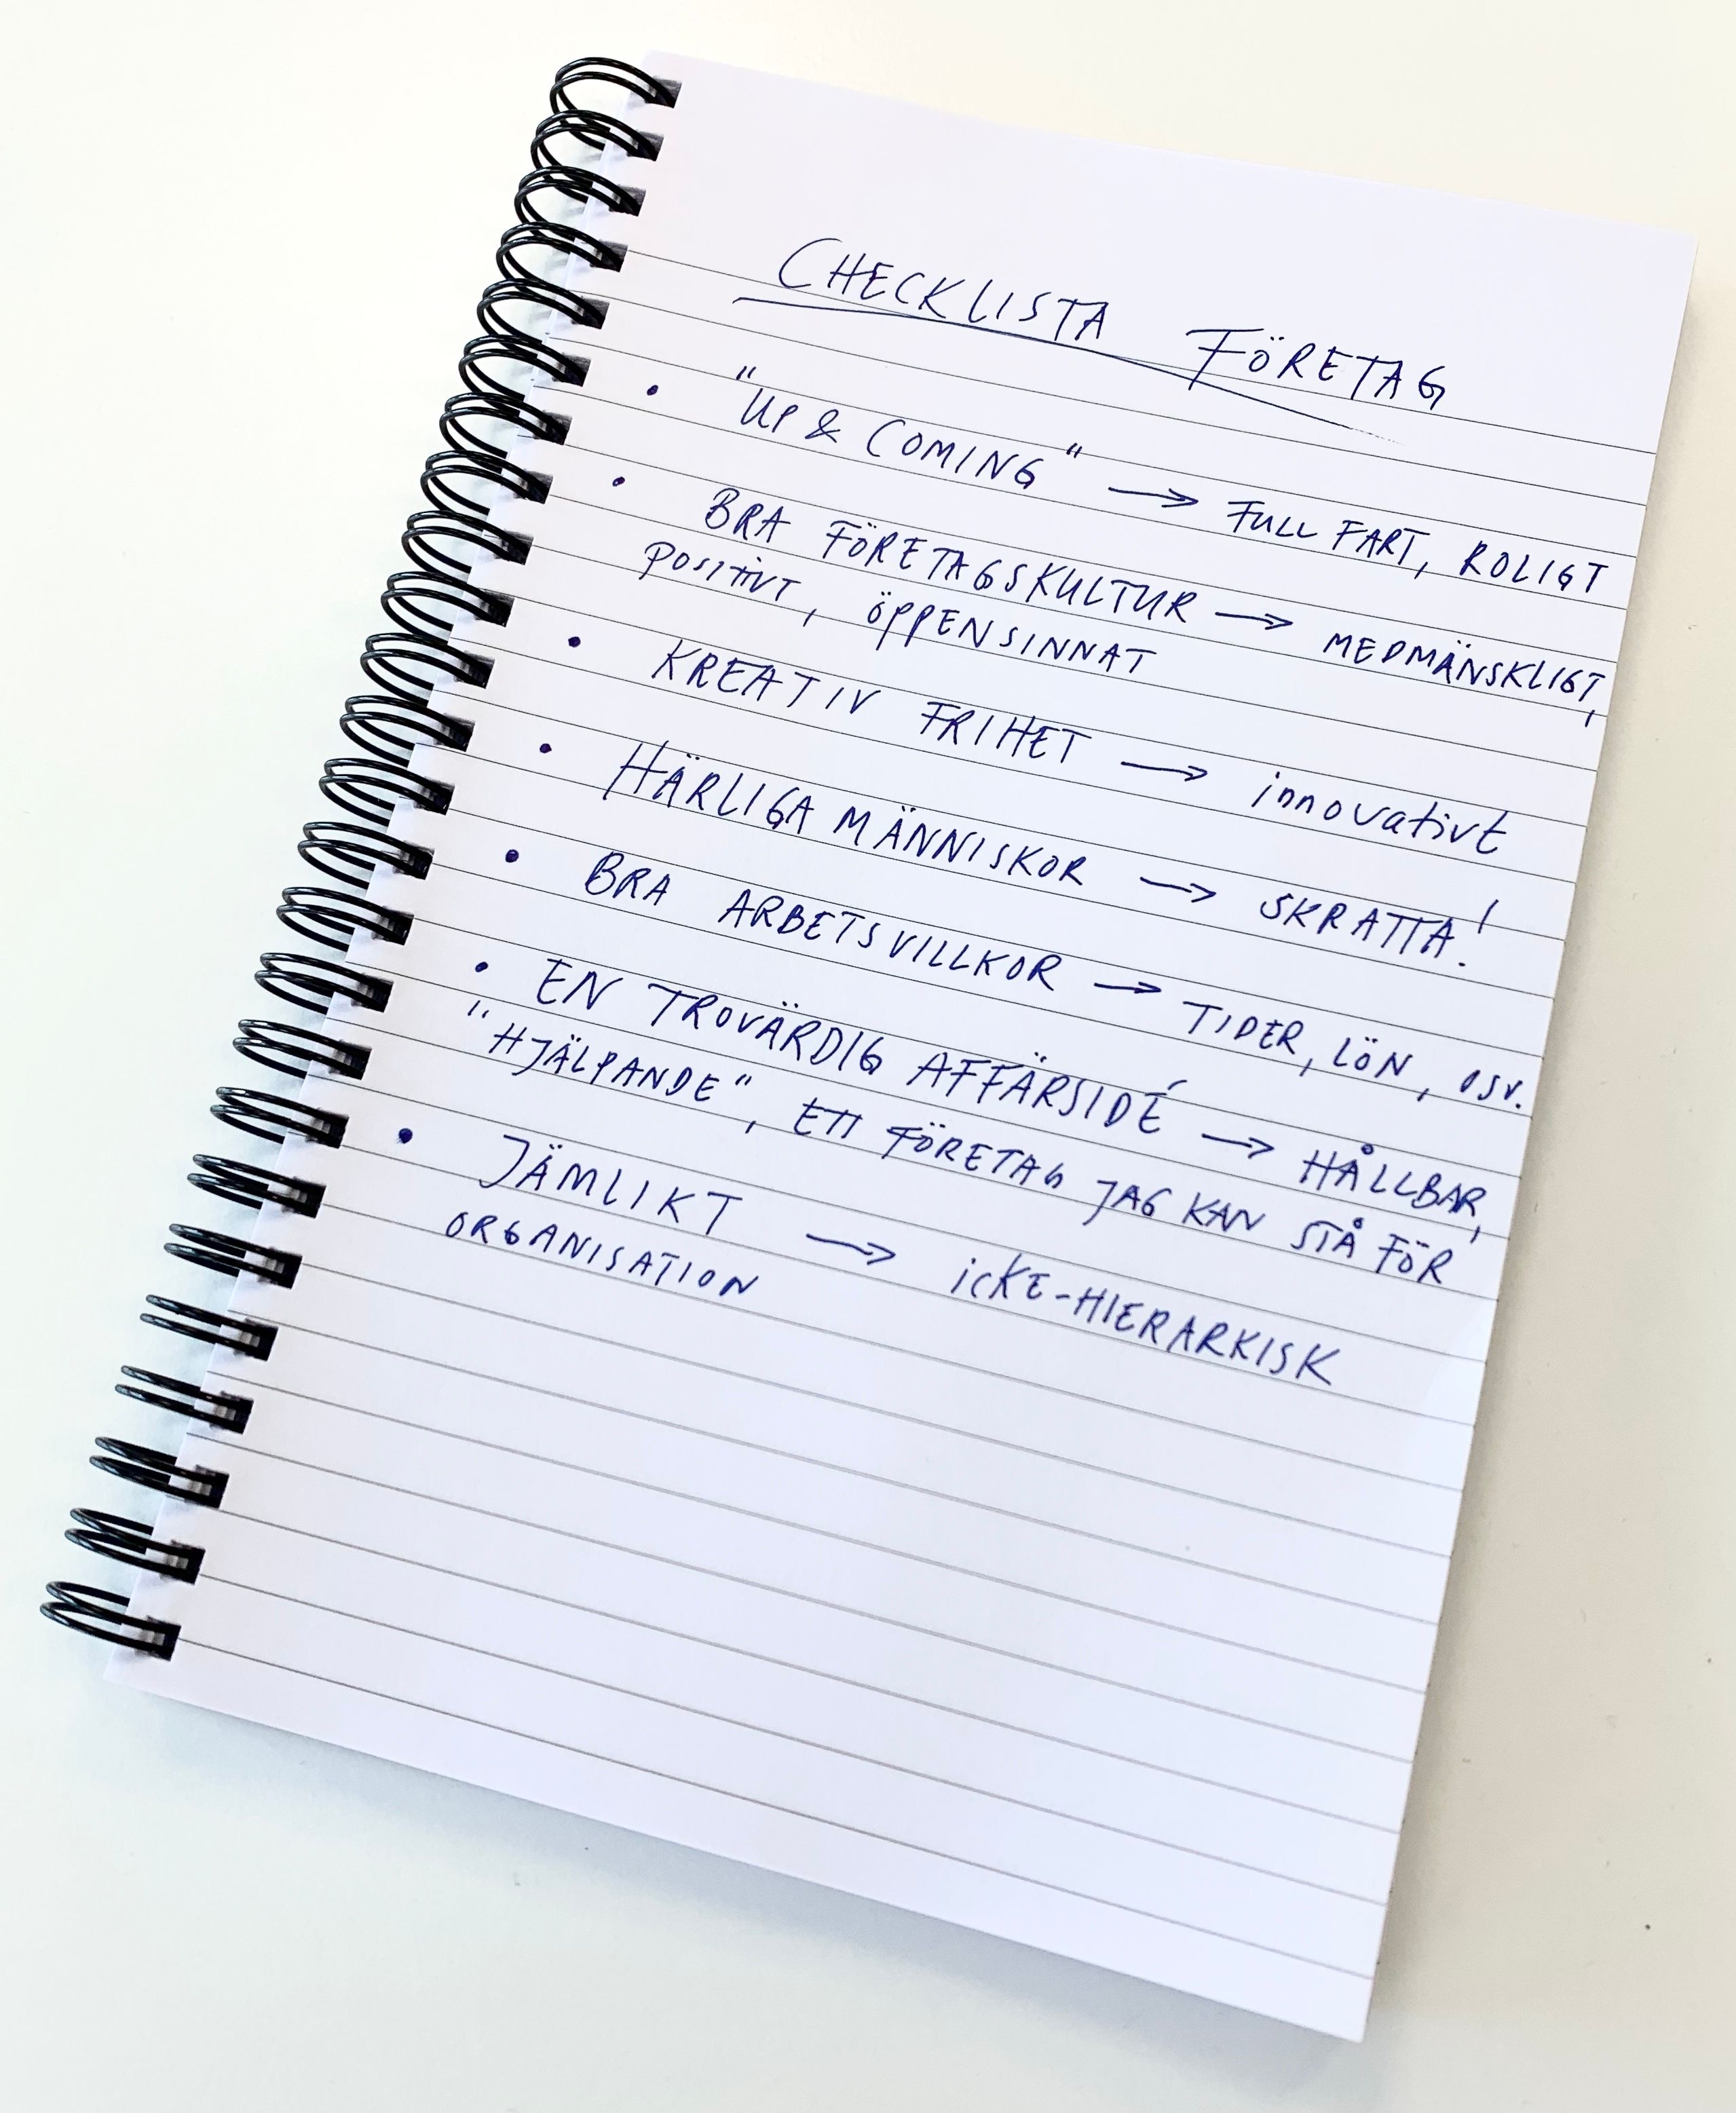 CHECKLISTA FÖRETAG
• "UP & COMING" → FULL FART, ROLIGT
• BRA FÖRETAGSKULTUR → MEDMÄNSKLIGT,
POSITIVT, ÖPPENSINNAT
• KREATIV FRIHET → innovativt
• HÄRLIGA MÄNNISKOR → SKRATTA!
• BRA ARBETSVILLKOR → TIDER, LÖN, OSV.
• EN TROVÄRDIG AFFÄRSIDÉ → HÅLLBAR,
"HJÄLPANDE", ETT FÖRETAG JAG KAN STÅ FÖR
• JÄMLIKT → icKE-HIERARKISK
ORGANISATION